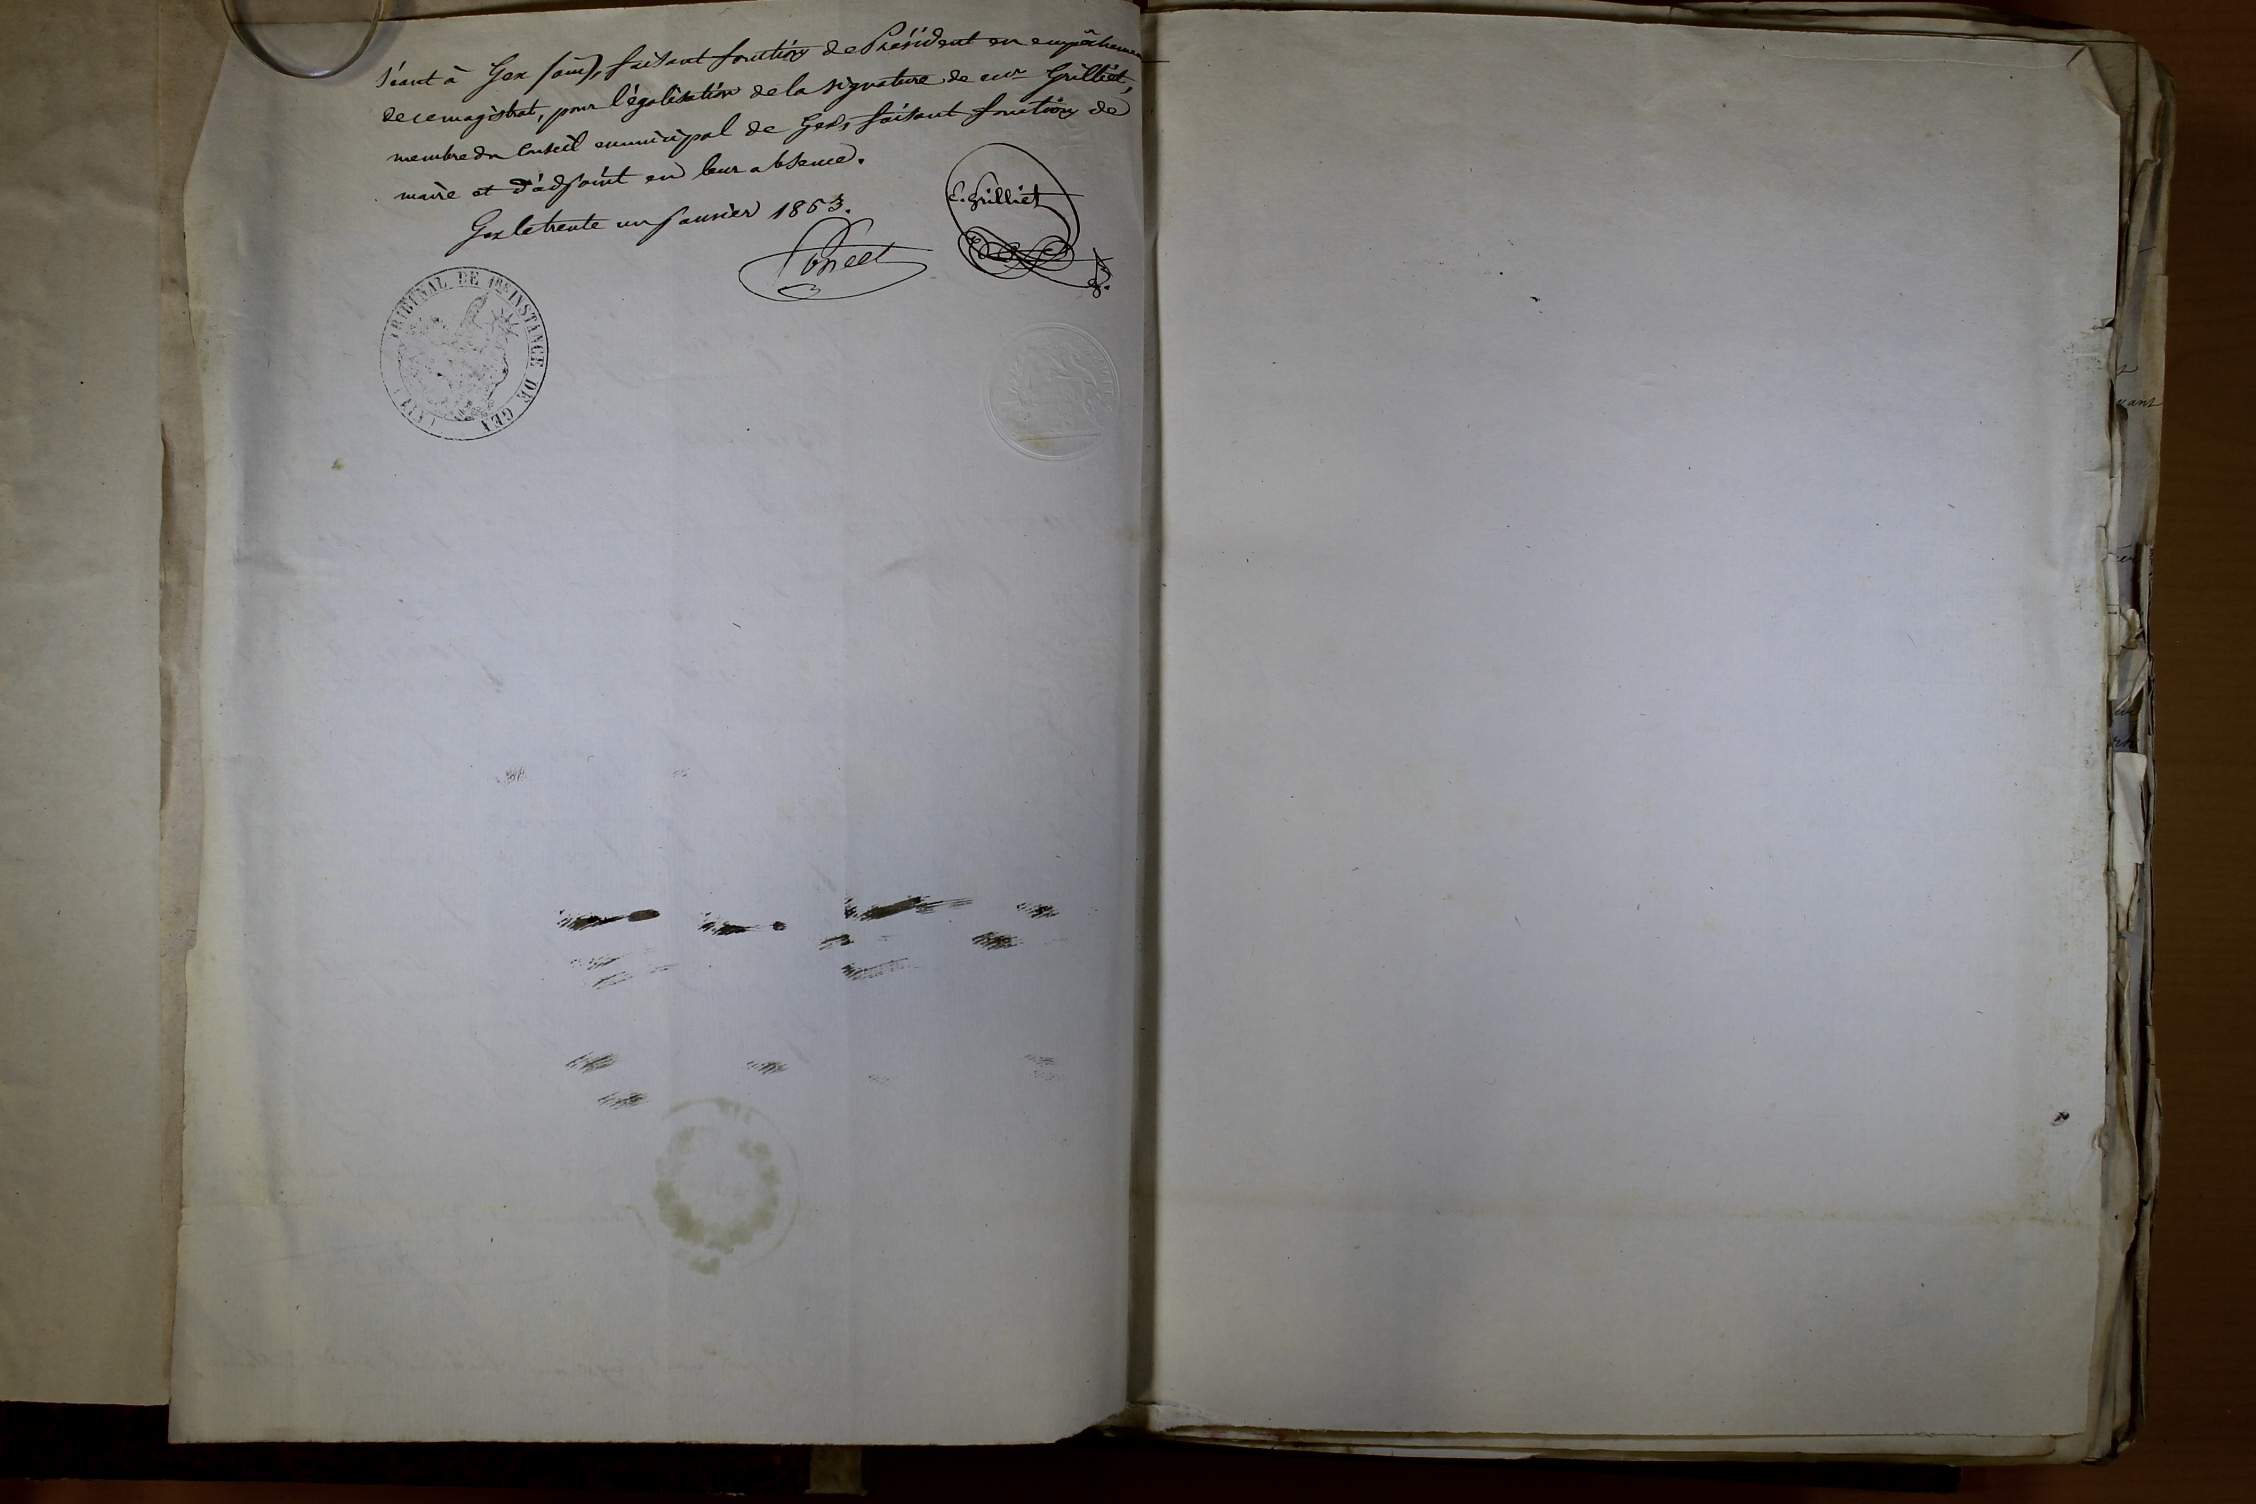 séant à Gex (ain), faisant fonction de Président en empêchement
de ce magistrat, pour légalisation de la signature de mr Grilliet,
membre du Conseil municipal de Gex, faisant fonction de
maire et d'adjoint en leur absence.
Gex le trente un janvier 1863.
E. Grilliet
TRIBUNAL DE 1RE INSTANCE DE GEX (AIN)